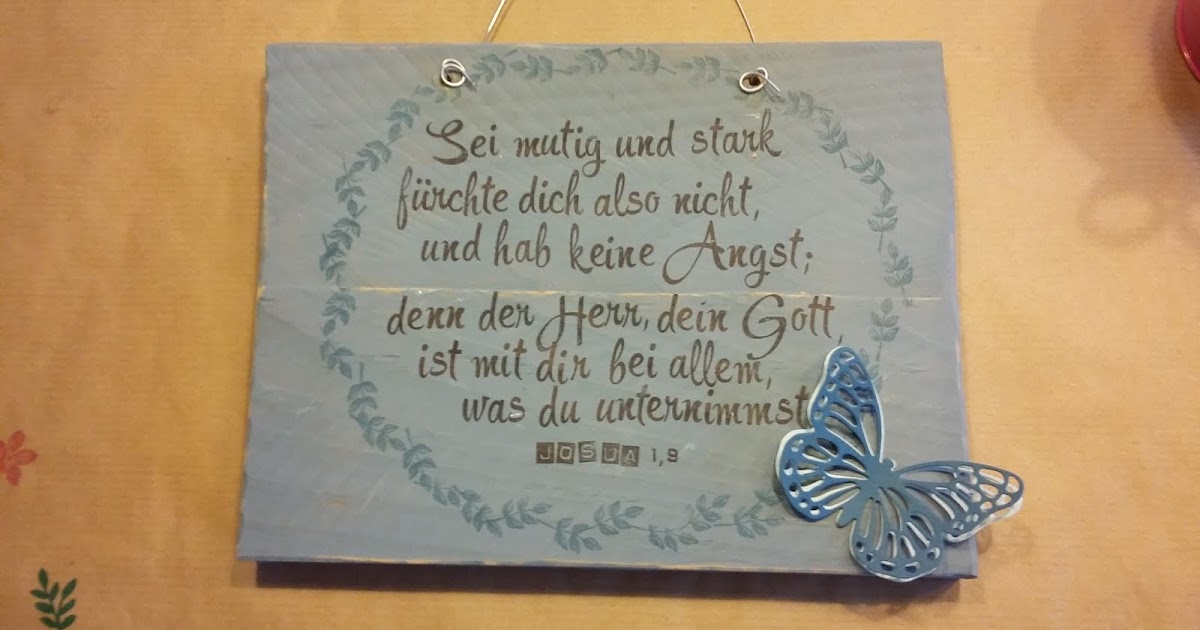 Sei mutig und stark
fürchte dich also nicht,
und hab keine Angst;
denn der Herr, dein Gott,
ist mit dir bei allem,
was du unternimmst
JOSUA 1,9